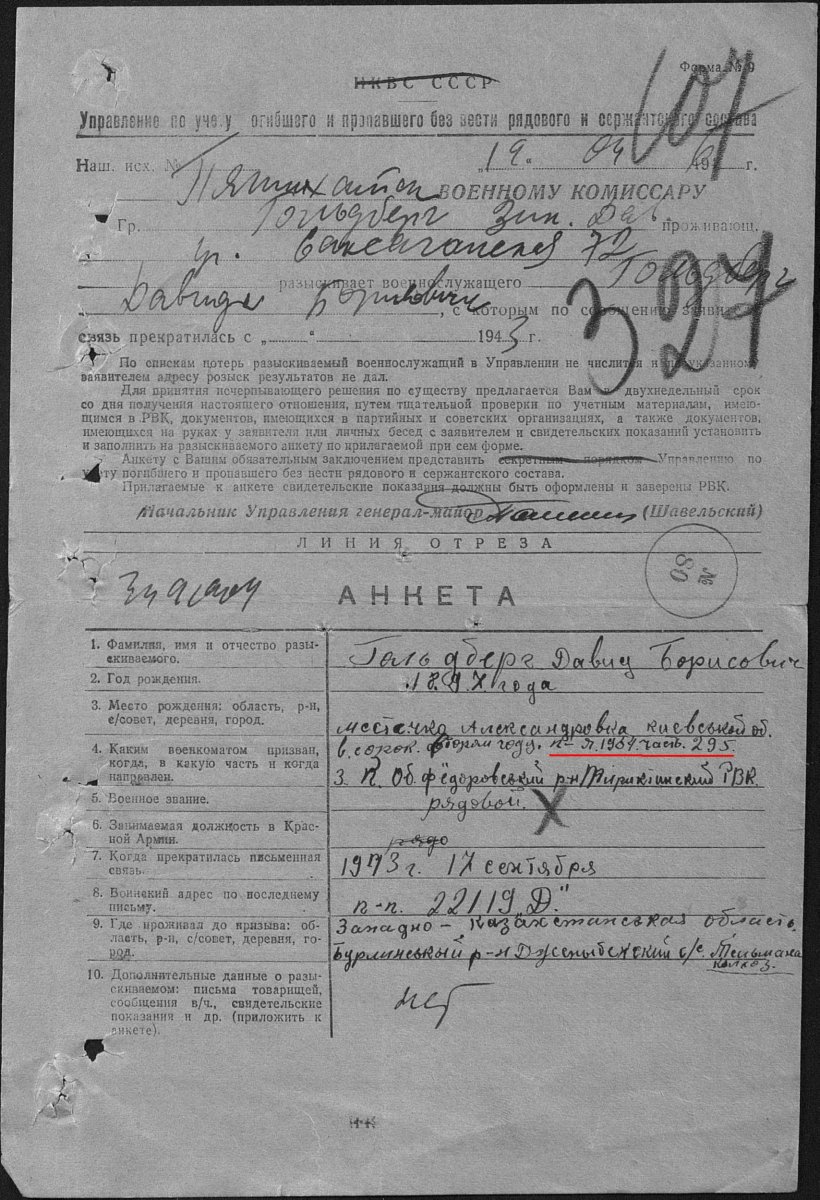 Форма № 9
НКВС СССР
Управление по учету погибшего и пропавшего без вести рядового и сержантского состава
107
Наш. исх. № „19“ 04 194 г.
Пятихатск ВОЕННОМУ КОМИССАРУ
Гр. Гольдберг Зин. Дав. проживающ.
ул. Саксаганская 72
разыскивает военнослужащего Гольдберг
Давида Борисовича, с которым по сообщению заяви
связь прекратилась с „ “ 1943 г.
327
По спискам потерь разыскиваемый военнослужащий в Управлении не числится и по указанному
заявителем адресу розыск результатов не дал.
Для принятия исчерпывающего решения по существу предлагается Вам в двухнедельный срок
со дня получения настоящего отношения, путем тщательной проверки по учетным материалам, имею-
щимся в РВК, документов, имеющихся в партийных и советских организациях, а также документов,
имеющихся на руках у заявителя или личных бесед с заявителем и свидетельских показаний установить
и заполнить на разыскиваемого анкету по прилагаемой при сем форме.
Анкету с Вашим обязательным заключением представить секретным порядком Управлению по
учету погибшего и пропавшего без вести рядового и сержантского состава.
Прилагаемые к анкете свидетельские показания должны быть оформлены и заверены РВК.
Начальник Управления генерал-майор (Шавельский)
ЛИНИЯ ОТРЕЗА
№ 80
АНКЕТА
1. Фамилия, имя и отчество разы-
скиваемого.
Гольдберг Давид Борисович
2. Год рождения.
1897 года
3. Место рождения: область, р-н,
с/совет, деревня, город.
местечко Александровка києвської об.
4. Каким военкоматом призван,
когда, в какую часть и когда
направлен.
в сорок втором году. п-я. 1954. часть. 295
З. К. Об. фёдоровський р-н РВК.
5. Военное звание.
рядовой.
6. Занимаемая должность в Крас-
ной Армии.
рядо
7. Когда прекратилась письменная
связь.
1943 г. 17 сентября
8. Воинский адрес по последнему
письму.
п-п. 22119 Д."
9. Где проживал до призыва: об-
ласть, р-н, с/совет, деревня, го-
род.
Западно-Казахстанськая область.
Бурлинський р-н с/с. Тельмана
колхоз.
10. Дополнительные данные о разы-
скиваемом: письма товарищей,
сообщения в/ч., свидетельские
показания и др. (приложить к
анкете).
нет